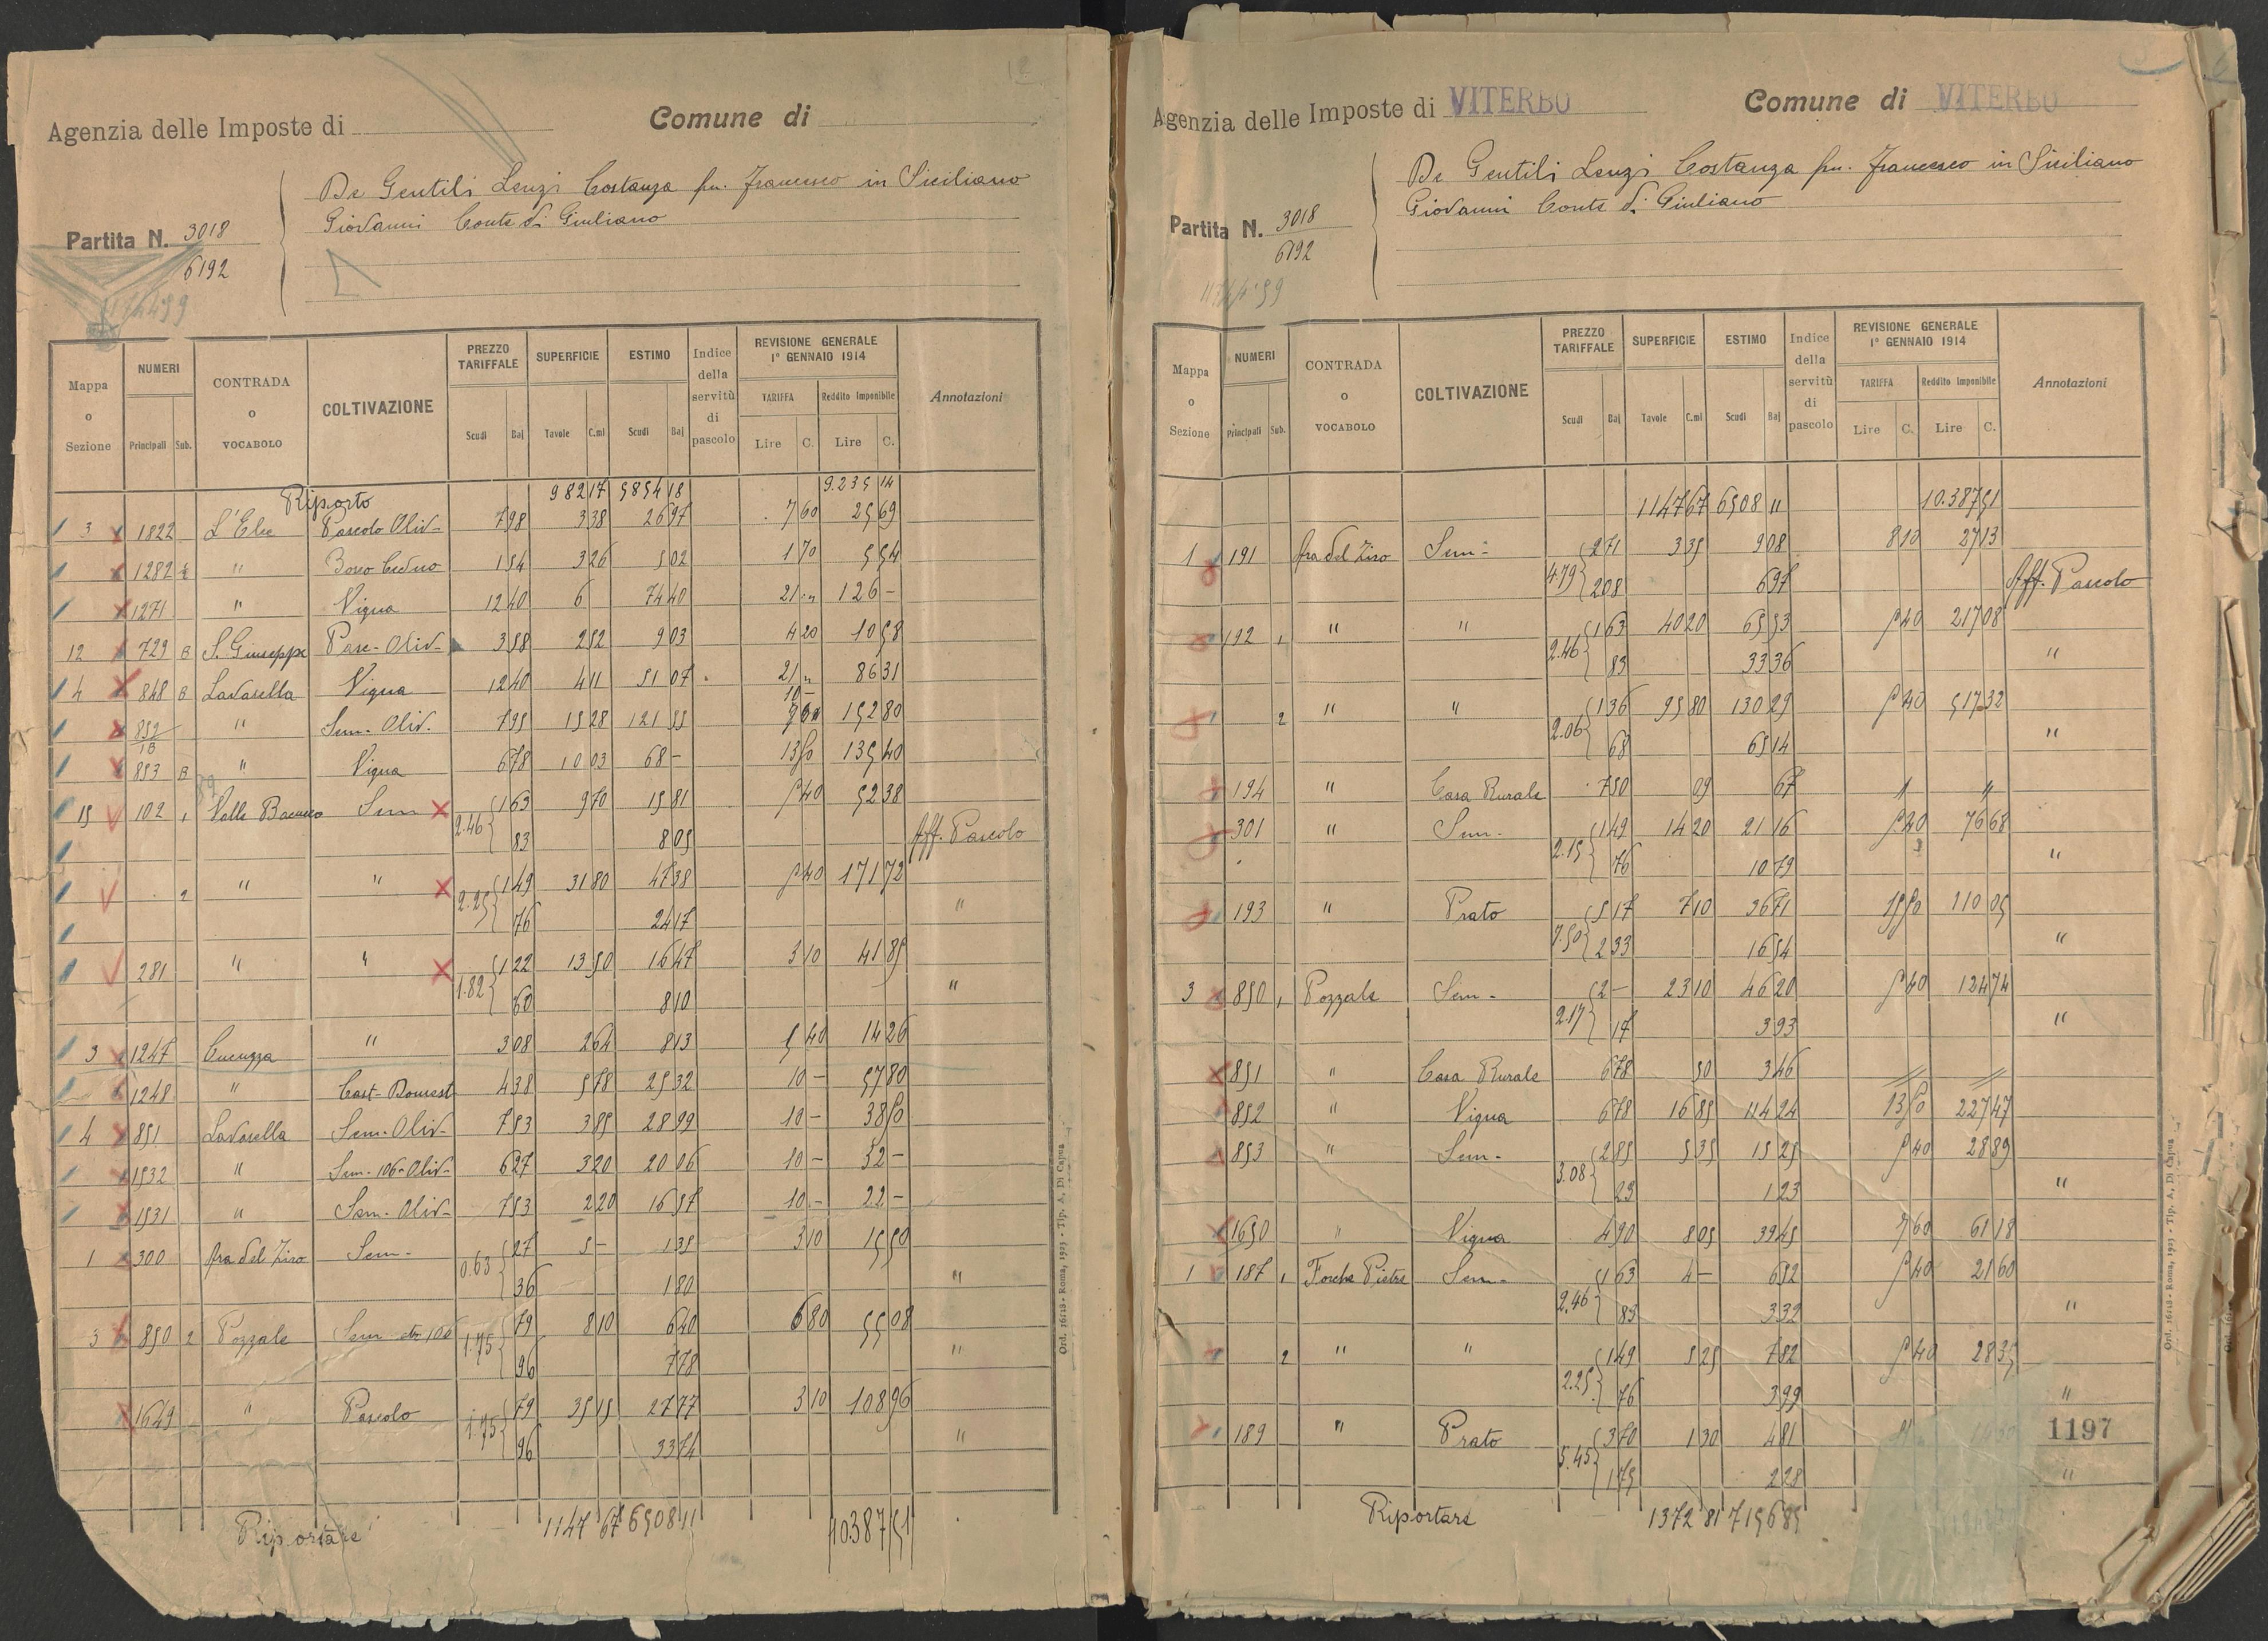 12
Agenzia delle Imposte di
Comune di
De Gentili Lenzi Costanza fu. Francesco in Siciliano
Giovanni Conte di Giuliano
Partita N. 3018
6192
Mappa o Sezione | NUMERI Principali Sub. | CONTRADA o VOCABOLO | COLTIVAZIONE | PREZZO TARIFFALE Scudi Baj | SUPERFICIE Tavole C.mi | ESTIMO Scudi Baj | Indice della servitù di pascolo | REVISIONE GENERALE 1° GENNAIO 1914 TARIFFA Lire C. Reddito Imponibile Lire C. | Annotazioni
Riporto 982 17 5854 18 9.235 14
3 1822 L'Elce Pascolo Oliv- 7 98 3 38 26 97 7 60 25 69
1282 " Bosco Ceduo 1 54 3 26 5 02 1 70 5 54
1271 " Vigna 12 40 6 74 40 21 " 126 -
12 729 B S. Giuseppe Pasc- Oliv- 3 58 2 52 9 03 4 20 10 58
4 848 B Lavarella Vigna 12 40 4 11 51 07 21 " 86 31
" Sem- Oliv. 7 95 15 28 121 55 10 - 152 80
853 B " Vigna 6 78 10 03 68 - 13 50 135 40
15 102 1 Valle Sem 2.46 1 63 9 70 15 81 5 40 52 38
83 8 05 Aff. Pascolo
2 " " 2.25 1 49 31 80 47 38 5 40 171 72
76 24 17 "
281 " " 1.82 1 22 13 50 16 47 3 10 41 85
60 8 10 "
3 1247 Cucuzza " 3 08 2 64 8 13 5 40 14 26
1248 " Cast- Domest 4 38 5 78 25 32 10 - 57 80
4 851 Lavarella Sem- Oliv- 7 53 3 85 28 99 10 - 38 50
1532 " Sem- 106- Oliv- 6 27 3 20 20 06 10 - 32 -
1531 " Sem- Oliv- 7 53 2 20 16 57 10 - 22 -
1 300 fra del Ziro Sem- 0.63 27 5 - 1 35 3 10 15 50
36 1 80 "
3 850 2 Pozzale Sem 1.75 79 8 10 6 40 6 80 55 08
96 7 78 "
1649 " Pascolo 1.75 79 35 15 27 77 3 10 108 96
96 33 74 "
Riportare 1147 67 6508 11 10387 51
Ord. 16518 - Roma, 1925 - Tip. A. Di Capua
Agenzia delle Imposte di VITERBO
Comune di VITERBO
De Gentili Lenzi Costanza fu. Francesco in Siciliano
Giovanni Conte di Giuliano
Partita N. 3018
6192
Mappa o Sezione | NUMERI Principali Sub. | CONTRADA o VOCABOLO | COLTIVAZIONE | PREZZO TARIFFALE Scudi Baj | SUPERFICIE Tavole C.mi | ESTIMO Scudi Baj | Indice della servitù di pascolo | REVISIONE GENERALE 1° GENNAIO 1914 TARIFFA Lire C. Reddito Imponibile Lire C. | Annotazioni
1147 67 6508 11 10.387 51
1 191 fra del Ziro Sem- 4.79 2 71 3 35 9 08 8 10 27 13
2 08 6 97 Aff. Pascolo
192 1 " " 2.46 1 63 40 20 65 53 5 40 217 08
83 33 36 "
2 " " 2.06 1 36 95 80 130 29 5 40 517 32
68 65 14 "
194 " Casa Rurale 7 50 09 67 " "
301 " Sem- 1 49 14 20 21 16 5 40 76 68
76 10 79 "
193 " Prato 7.50 5 17 7 10 36 71 15 50 110 05
2 33 16 54 "
3 850 1 Pozzale Sem- 2.17 2 - 23 10 46 20 5 40 124 74
17 3 93 "
851 " Casa Rurale 6 78 50 3 46
852 " Vigna 6 78 16 85 114 24 13 50 227 47
853 " Sem- 3.08 2 85 5 35 15 25 5 40 28 89
23 1 23 "
1650 " Vigna 4 90 8 05 39 45 7 60 61 18
1 187 1 Forche Pietre Sem- 2.46 1 63 4 - 6 52 5 40 21 60
83 3 32 "
2 " " 2.25 1 49 5 25 7 82 5 40 28 35
76 3 99 "
189 " Prato 5.45 3 70 1 30 4 81 1197
1 75 2 28 "
Riportare 1372 81 7156 85
Ord. 16518 - Roma, 1925 - Tip. A. Di Capua